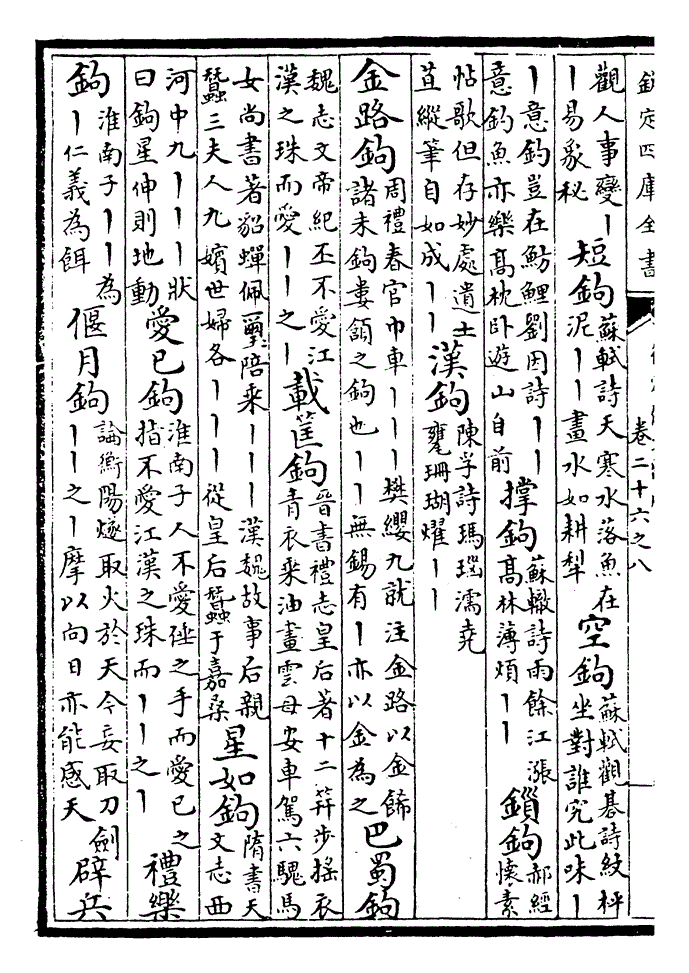 欽定四庫全書 卷二十六之八
觀人事變丨丨易象秘 短鉤 蘇軾詩天寒水落魚在泥丨丨畫水如耕犁 空鉤 蘇軾觀棊詩紋枰坐對誰究此味丨
丨意釣豈在魴鯉劉因詩丨丨意釣魚亦樂髙枕卧遊山自前 撑鉤 蘇轍詩雨餘江漲髙林薄煩丨丨 鎻鉤 郝經懷素
帖歌但存妙處遺土苴縱筆自如成丨丨 漢鉤 陳孚詩瑪瑙濡堯甕珊瑚燿丨丨
金路鉤 周禮春官巾車丨丨丨樊纓九就注金路以金飾諸末鉤婁頷之鉤也丨丨無錫有丨亦以金為之 巴蜀鉤
魏志文帝紀丕不愛江漢之珠而愛丨丨之丨 載筐鉤 晉書禮志皇后著十二笄步摇衣青衣乘油畫雲母安車駕六騩馬
女尚書著貂蟬佩璽陪乘丨丨丨漢魏故事后親蠶三夫人九嬪世婦各丨丨丨丨從皇后蠶于嘉桑 星如鉤 隋書天文志西
河中九丨丨丨狀曰鉤星伸則地動 愛已鉤 淮南子人不愛倕之手而愛已之指不愛江漢之珠而丨丨之丨 禮樂
鉤 淮南子丨丨為丨仁義為餌 偃月鉤 論衡陽燧取火於天今妄取刀劍丨丨之丨摩以向日亦能感天 辟兵